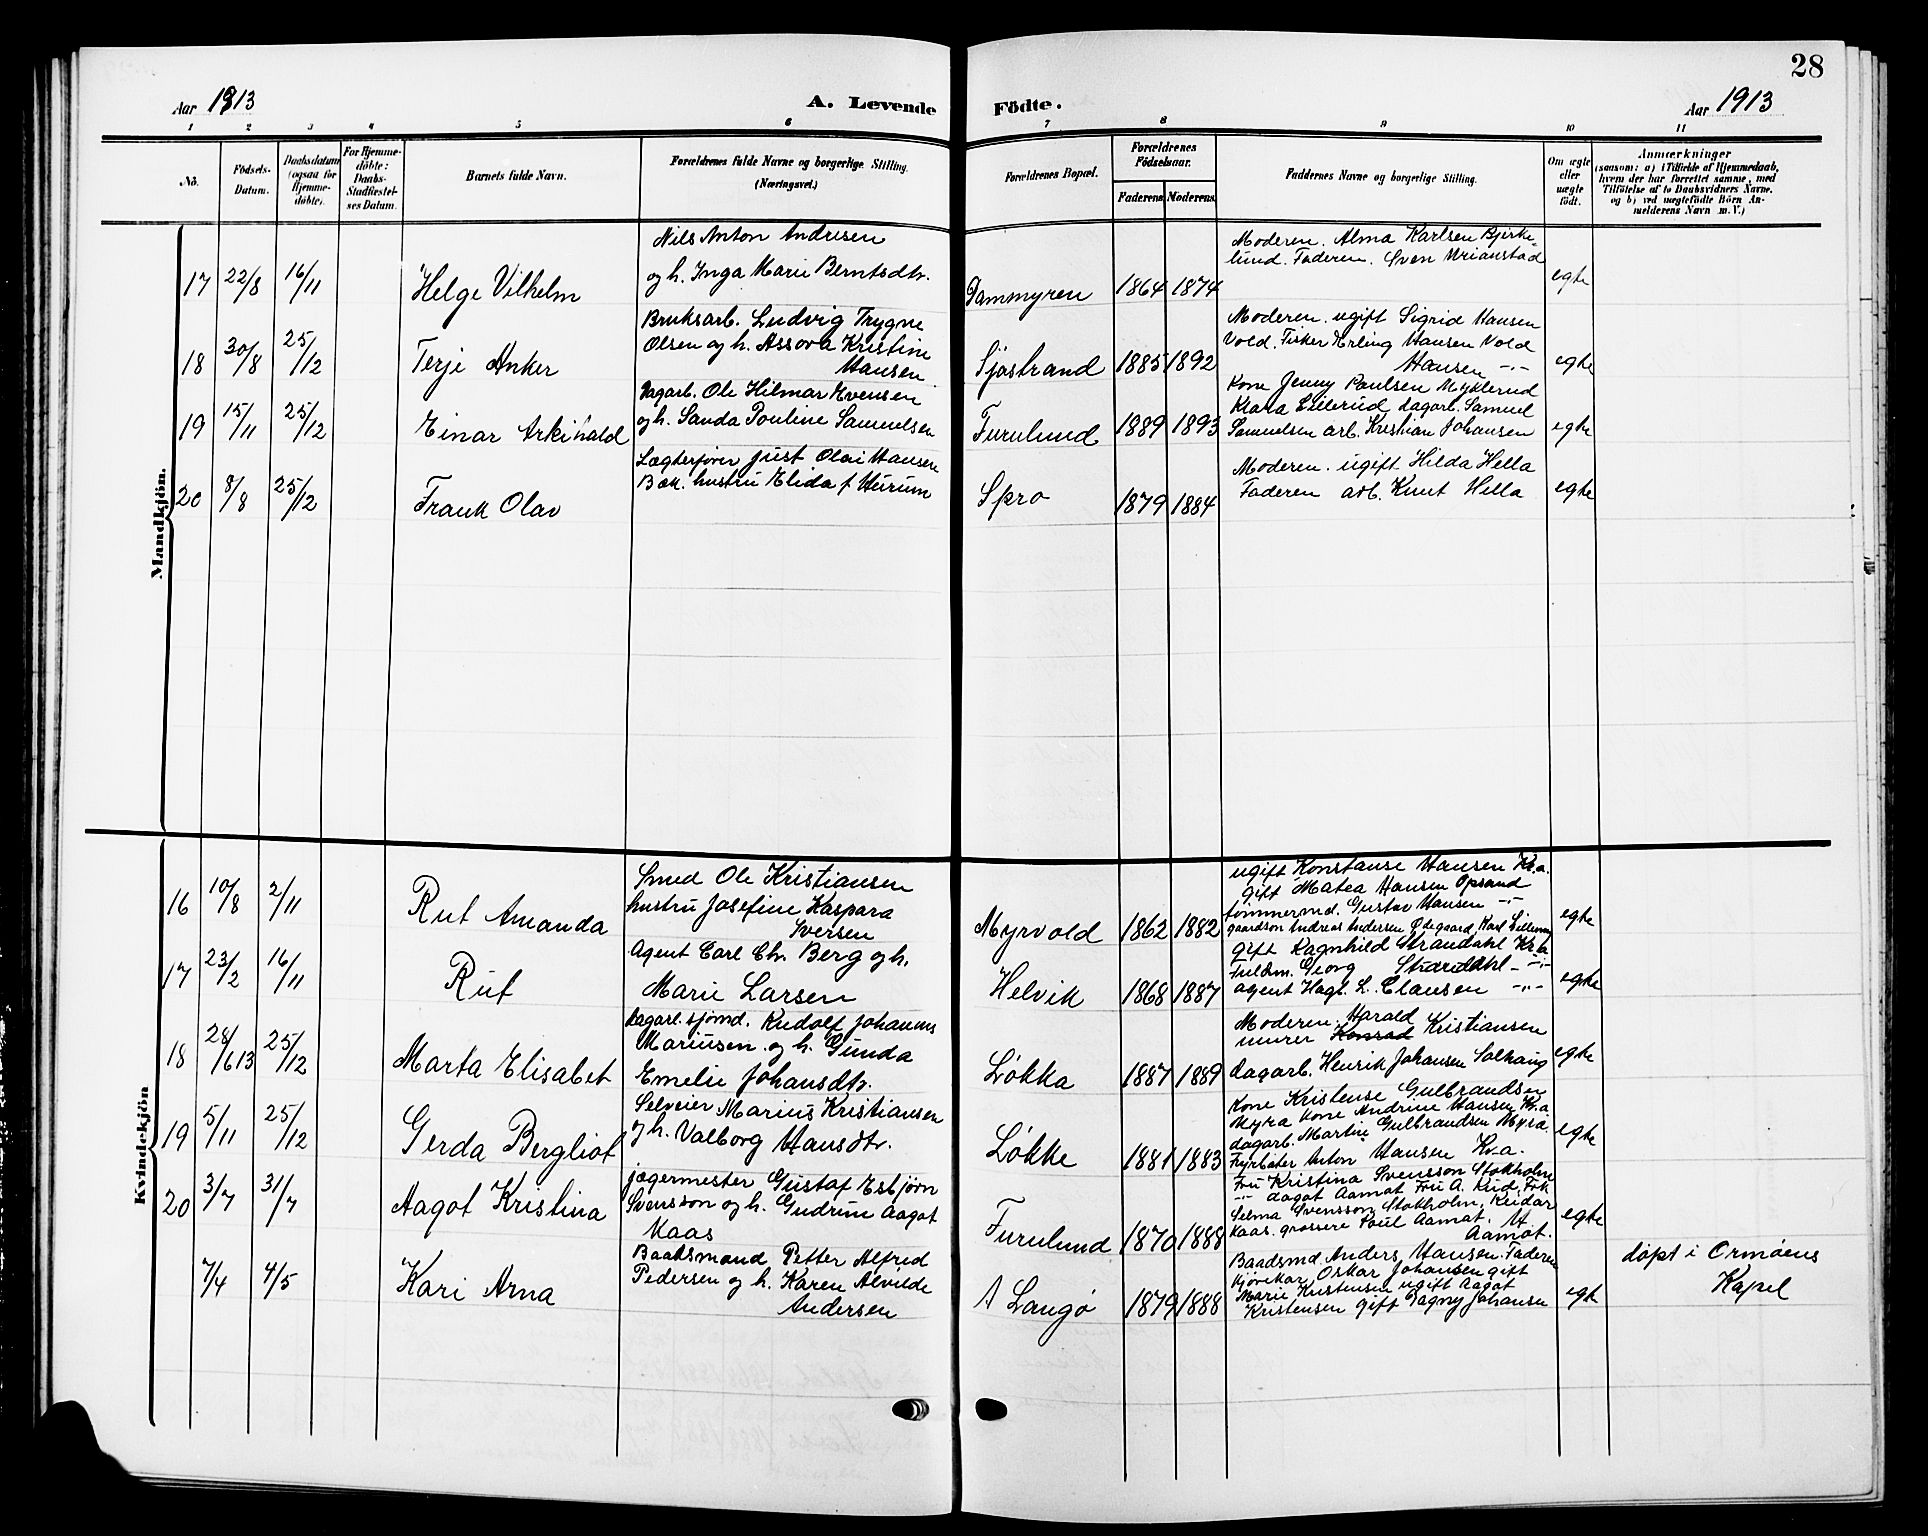 28
Aar 1913
A. Levende Födte.
Aar 1913
1 2 3 4 5 6 7 8 9 10 11
No.
Födsels-
Datum.
Daabsdatum
(ogsaa for
Hjemme-
döbte).
For Hjemme-
döbte:
Daabs-
Stadfæstel-
ses Datum.
Barnets fulde Navn.
Forældrenes fulde Navne og borgerlige Stilling.
(Næringsvei.)
Forældrenes Bopæl.
Forældrenes
Födselsaar.
Faderens. Moderens.
Faddernes Navne og borgerlige Stilling.
Om ægte
eller
uægte
födt.
Anmærkninger
(saasom: a) i Tilfælde af Hjemmedaab,
hvem der har forrettet samme, med
Tilföielse af to Daabsvidners Navne.
og b) ved uægtefödte Börn An-
melderens Navn m. V.)
Mandkjön.
17 22/8 16/11 Helge Vilhelm
Nils Anton Andresen
og h. Inga Marie Berntsdtr.
Dammyren 1864 1874
Moderen. Alma Karlsen Bjirke-
lund. Faderen. Sven Urianstad
egte
18 30/8 25/12 Terje Anker
Bruksarb. Ludvig Trygve
Olsen og h. Assora Kristine
Hansen
Sjøstrand 1885 1892
Moderen. ugift Sigrid Hansen
Vold. Fisker Erling Hansen Vold
Hansen -"-
egte
19 15/11 25/12 Einar Arkihald
Dagarb. Ole Hilmar Evensen
og h. Sanda Pouline Samuelsen
Furulund 1889 1893
Kone Jenny Paulsen Myklerud
Klara Lillerud dagarb. Samuel
Samuelsen arb. Kristian Johansen
egte
20 8/8 25/12 Frank Olav
Lægterfører Just Olai Hansen
Bæk. hustru Elida f Hurum
Spro 1879 1884
Moderen. ugift Hilda Hella
Faderen arb. Knut Hella
egte
Kvindekjön
16 10/8 2/11 Rut Amanda
Smed Ole Kristiansen
hustru Josefine Kaspara
Iversen
Myrvold 1862 1882
ugift Konstanse Hansen Kr.a.
gift Matea Hansen Opsand
tømmermd. Gustav Hansen -"-
gaardson Andreas Andersen Ødegaard, Karl
egte
17 23/2 16/11 Rut
Agent Carl Chr. Berg og h.
Marie Larsen
Helvik 1868 1887
gift Ragnhild Strandahl Kr.a
Fuldm. Georg Strandahl -"-
agent Hagb. L. Clausen -"-
egte
18 28/6 13 25/12 Marta Elisabet
Dagarb. sjømd. Rudolf Johannes
Mariusen og h. Gunda
Emelie Johansdtr.
Løkka 1887 1889
Moderen. Harald
murer Konrad Kristiansen
dagarb. Henrik Johansen Solhaug
egte
19 5/11 25/12 Gerda Bergliot
Selveier Marius Kristiansen
og h. Valborg Hansdtr.
Løkke 1881 1883
Kone Kristense Gulbrandsen
Myra Kone Andrine Hansen Kr.a
dagarb. Martin Gulbrandsen Myra.
Fyrbøter Anton Hansen Kr.a.
egte
20 3/7 31/7 Aagot Kristina
jægermester Gustaf Esbjørn
Svensson og h. Gudrun Aagot
Kaas
Furulund 1870 1888
Fru Kristina Svensson Stokholm
-"- dagot Aamot Fru A. Rud, Frk
Selma Svensson Stokholm, Reidar
Kaas. grossere Poul Aamot. H.
Aamot.
egte
7/4 4/5 Kari Arna
Baadsmand Petter Alfred
Pedersen og h. Karen Alvilde
Andersen
A Langø 1879 1888
Baadsmd. Anders Hansen. Faderen
Oskar Johansen gift
Marie Kristensen ugift Aagot
Kristensen gift Dagny Johansen
egte
døpt i Ormøens
Kapel